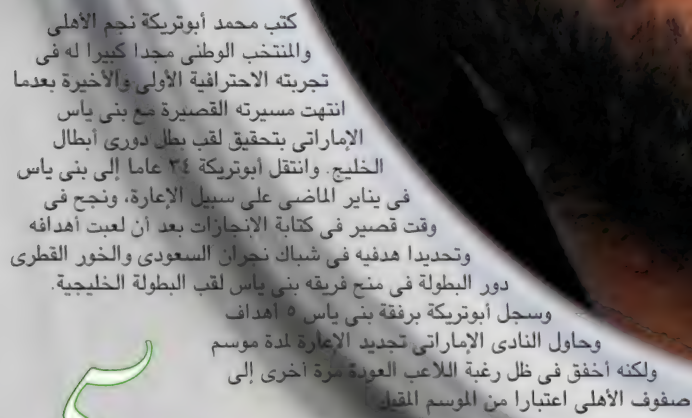 كتب محمد أبوتريكة نجم الأهلى
والمنتخب الوطنى مجدا كبيرا له فى
تجربته الاحترافية الأولى والأخيرة بعدما
انتهت مسيرته القصيرة مع بنى ياس
الإماراتى بتحقيق لقب بطل دورى أبطال
الخليج. وانتقل أبوتريكة ٣٤ عاما إلى بنى ياس
فى يناير الماضى على سبيل الإعارة، ونجح فى
وقت قصير فى كتابة الإنجازات بعد أن لعبت أهدافه
وتحديدا هدفيه فى شباك نجران السعودى والخور القطرى
دور البطولة فى منح فريقه بنى ياس لقب البطولة الخليجية.
وسجل أبوتريكة برفقة بنى ياس ٥ أهداف
وحاول النادى الإماراتى تجديد الإعارة لمدة موسم
ولكنه أخفق فى ظل رغبة اللاعب العودة مرة أخرى إلى
صفوف الأهلى اعتبارا من الموسم المقبل